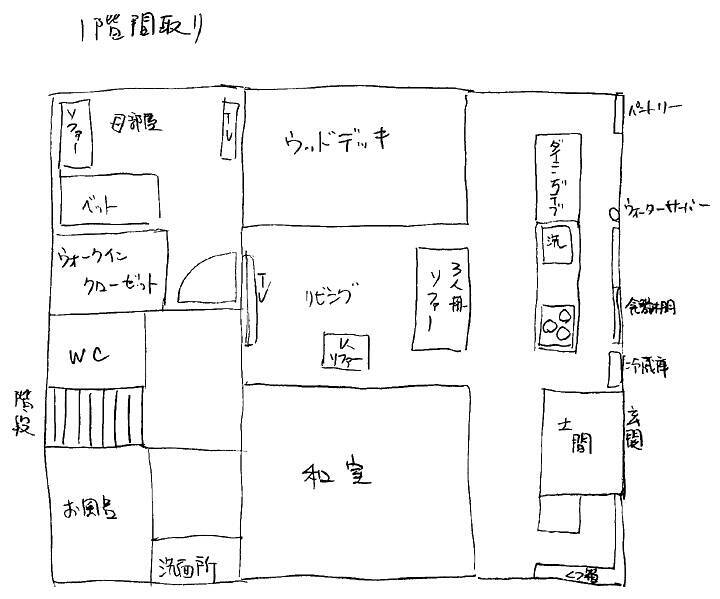 1階間取り
ソファー
母部屋
TV
ウッドデッキ
パントリー
ダイニングテーブ
ベット
ウォーターサーバー
洗
ウォークイン
クローゼット
TV
リビング
3人掛
ソファー
食器棚
WC
1人
ソファー
冷蔵庫
階段
土間
玄関
和室
お風呂
洗面所
くつ箱